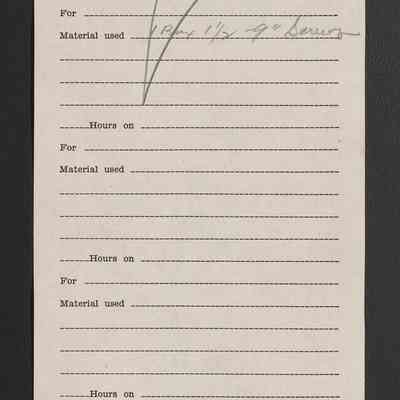 For
Material used 1 Box 1 1/2 - 9" Screws
Hours on
For
Material used
Hours on
For
Material used
Hours on